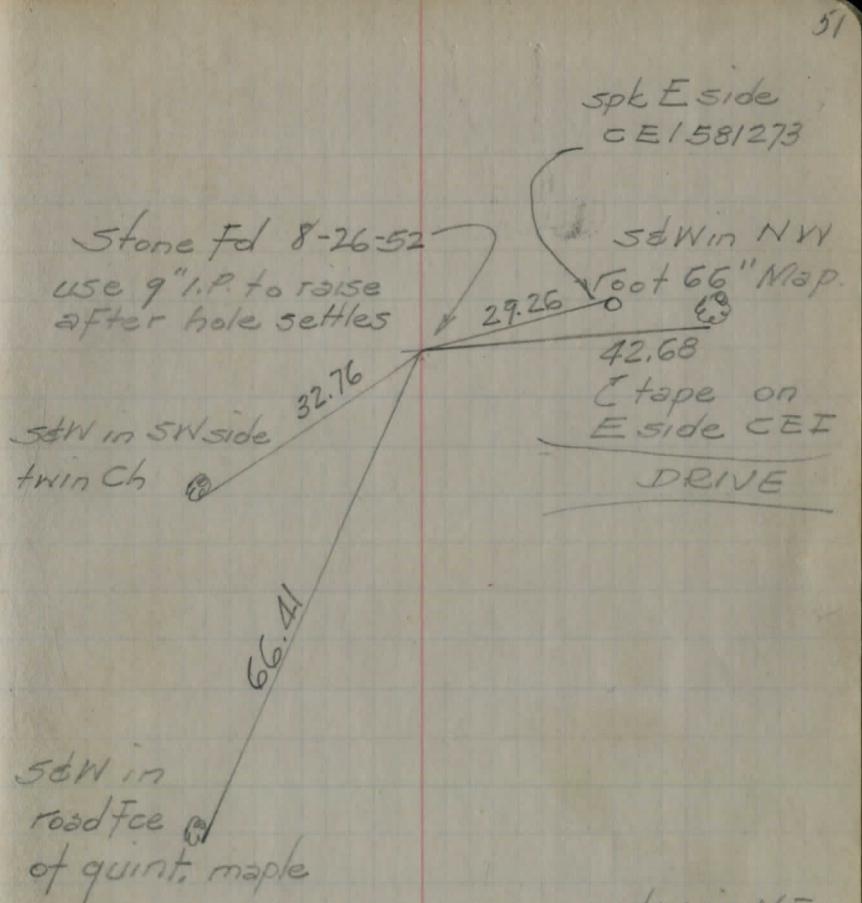 51
spk E side
CEI 581273
Stone Fd 8-26-52
use 9" I.P. to raise
after hole settles
S&W in NW
root 66" Map.
29.26
42.68
℄ tape on
E side CEI
DRIVE
32.76
S&W in SW side
twin Ch
66.41
S&W in
road fce
of quint. maple